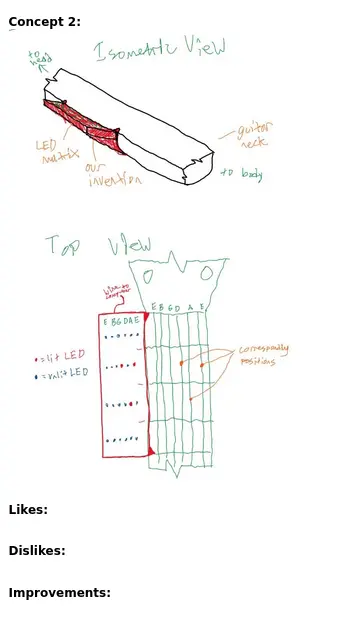 Concept 2:
Isometric View
to head
LED matrix
our invention
guitar neck
to body
Top View
wire to computer
E B G D A E
E B G D A E
• = lit LED
• = unlit LED
corresponding positions
Likes:
Dislikes:
Improvements: